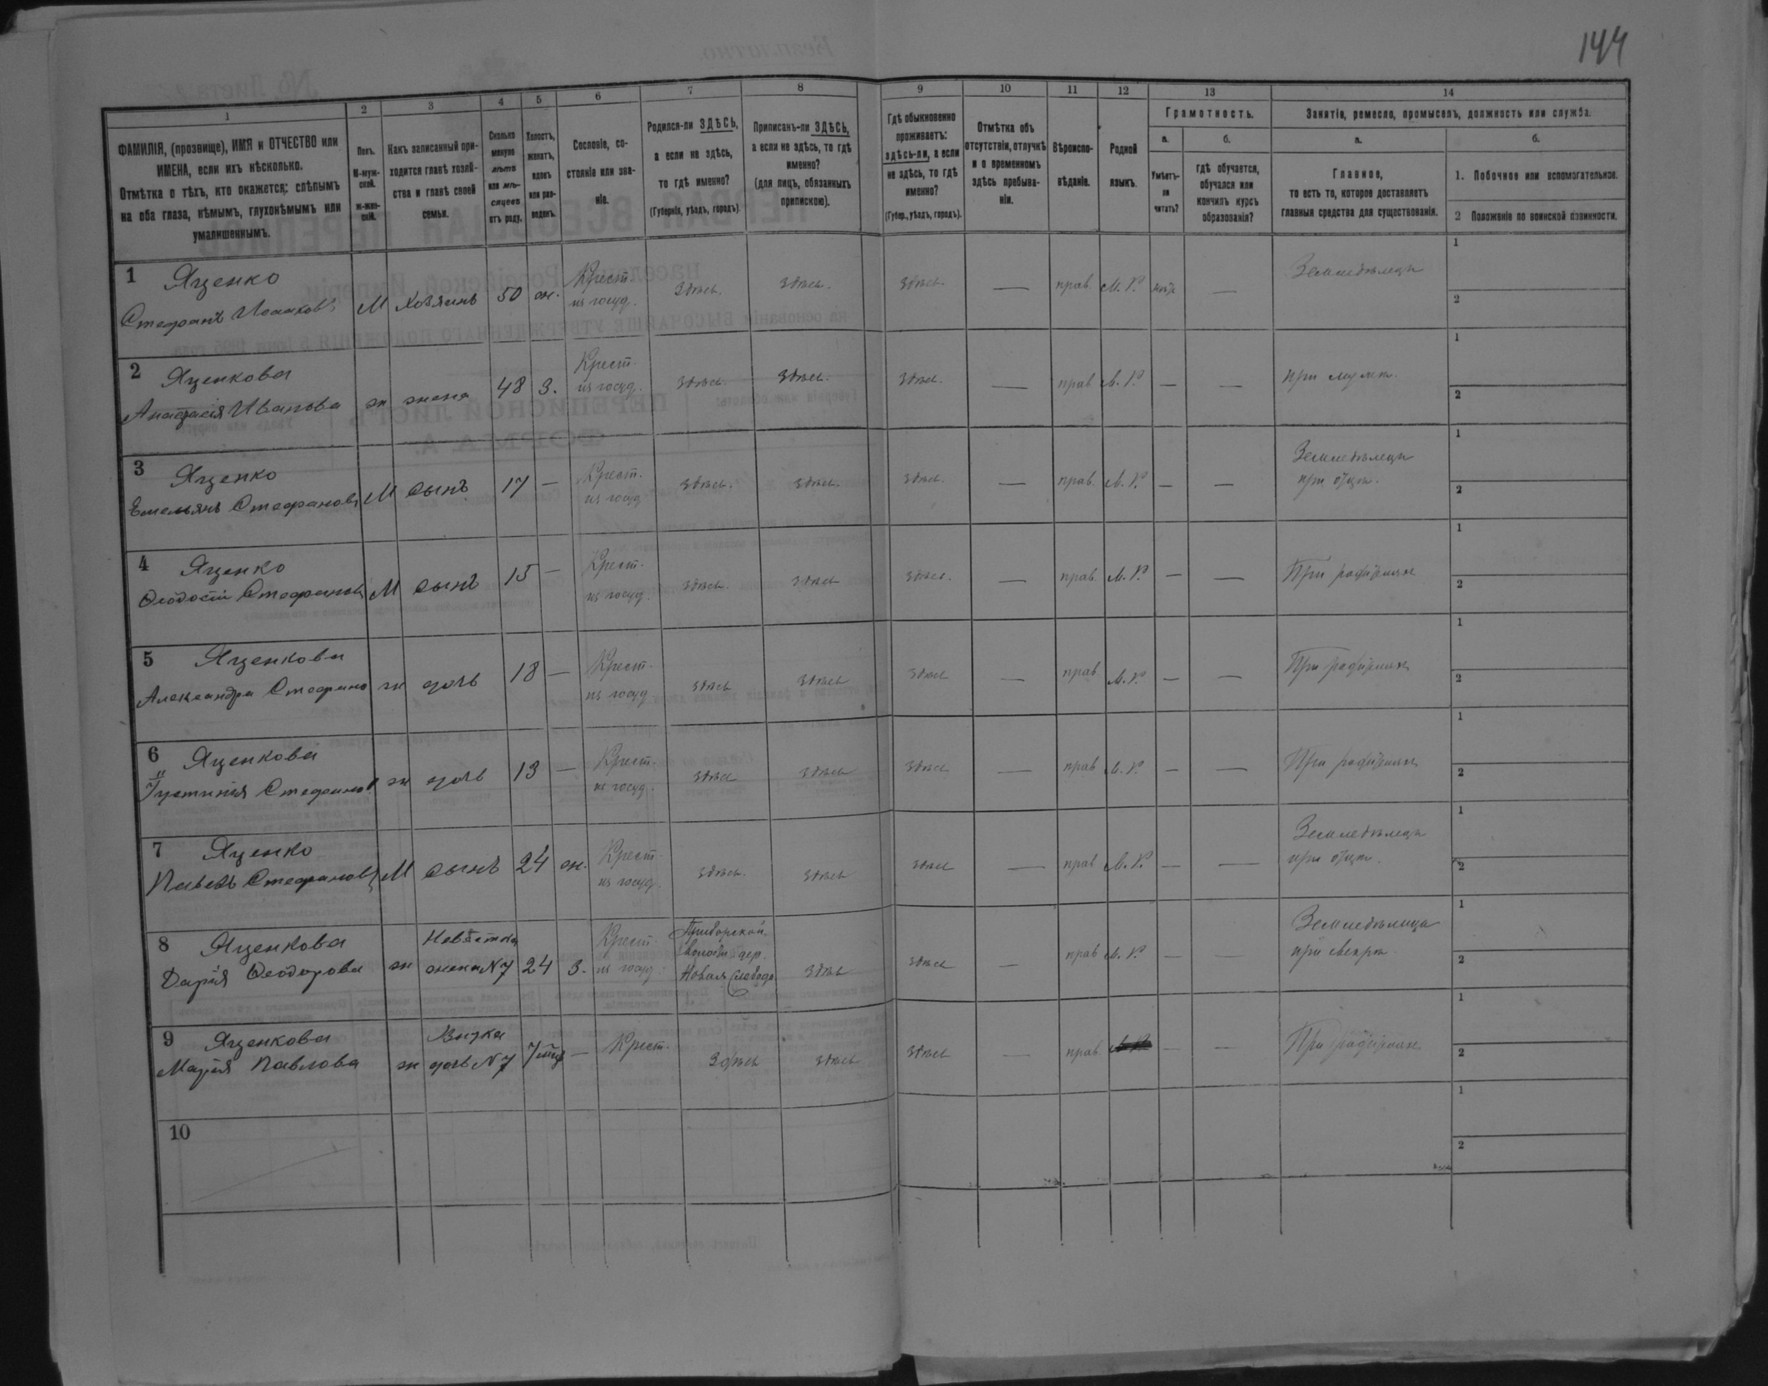 144
1 2 3 4 5 6 7 8 9 10 11 12 13 14
ФАМИЛІЯ, (прозвище), ИМЯ и ОТЧЕСТВО или
ИМЕНА, если ихъ нѣсколько.
Отмѣтка о тѣхъ, кто окажется: слѣпымъ
на оба глаза, нѣмымъ, глухонѣмымъ или
умалишеннымъ.
Полъ.
М-муж-
ской.
ж-жен-
скій.
Какъ записанный при-
ходится главѣ хозяй-
ства и главѣ своей
семьи.
Сколько
минуло
лѣтъ
или мѣ-
сяцевъ
отъ роду.
Холостъ,
женатъ,
вдовъ
или раз-
веденъ.
Сословіе, со-
стояніе или зва-
ніе.
Родился-ли ЗДѢСЬ,
а если не здѣсь,
то гдѣ именно?
(Губернія, уѣздъ, городъ).
Приписанъ-ли ЗДѢСЬ,
а если не здѣсь, то гдѣ
именно?
(для лицъ, обязанныхъ
припискою).
Гдѣ обыкновенно
проживаетъ:
здѣсь-ли, а если
не здѣсь, то гдѣ
именно?
(Губер., уѣздъ, городъ).
Отмѣтка объ
отсутствіи, отлучкѣ
и о временномъ
здѣсь пребыва-
ніи.
Вѣроиспо-
вѣданіе.
Родной
языкъ.
Грамотность.
а.
Умѣетъ-
ли
читать?
б.
гдѣ обучается,
обучался или
кончилъ курсъ
образованія?
Занятіе, ремесло, промыселъ, должность или служба.
а.
Главное,
то есть то, которое доставляетъ
главныя средства для существованія.
б.
1. Побочное или вспомогательное.
2 Положеніе по воинской повинности.
1 Яценко
Стефанъ Исааковъ М Хозяинъ 50 ж. Крест. из госуд. здѣсь. здѣсь. здѣсь — прав. М. Р. — Земледѣлецъ 1 2
2 Яценкова
Анастасія Иванова ж жена 48 З. Крест. из госуд. здѣсь. здѣсь. здѣсь. — прав М. Р. — — при мужѣ 1 2
3 Яценко
Емельянъ Стефановъ М сынъ 17 — Крест. из госуд здѣсь. здѣсь. здѣсь. — прав. М. Р. — — Земледѣлецъ при отцѣ. 1 2
4 Яценко
Ѳеодосій Стефановъ М сынъ 15 — Крест. из госуд. здѣсь. здѣсь здѣсь. — прав. М. Р. — — При родителяхъ 1 2
5 Яценкова
Александра Стефанова ж дочь 18 — Крест. из госуд здѣсь здѣсь здѣсь — прав М. Р. — — При родителяхъ 1 2
6 Яценкова
Іустинія Стефанова ж дочь 13 — Крест. из госуд. здѣсь здѣсь здѣсь — прав М. Р. — — При родителяхъ 1 2
7 Яценко
Павелъ Стефановъ М сынъ 24 ж. Крест. из госуд. здѣсь. здѣсь здѣсь — прав М. Р. — — Земледѣлецъ при отцѣ. 1 2
8 Яценкова
Дарія Ѳеодорова ж Невѣстка жена N 7 24 З. Крест. из госуд. волости дер. Новая Слобода. здѣсь здѣсь — прав М. Р. — — Земледѣлица при свекрѣ 1 2
9 Яценкова
Марія Павлова ж Внука дочь N 7 7 мѣс — Крест. Здѣсь здѣсь здѣсь — прав. — — При родителяхъ 1 2
10 1 2